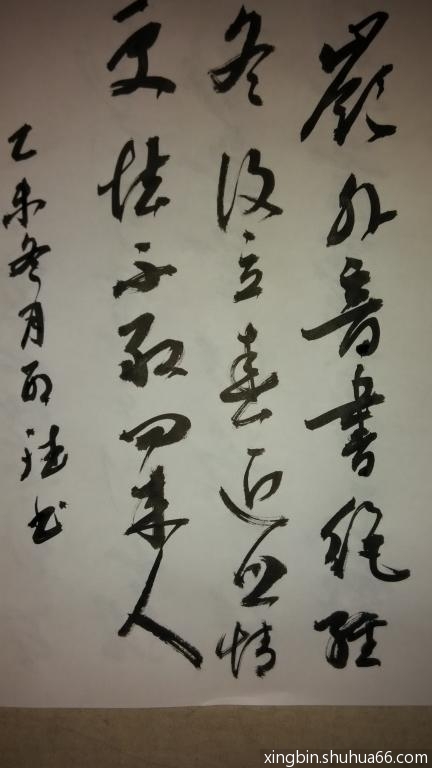 嶺外音書絕經
冬復立春近乡情
更怯不敢问来人
乙未冬月书
xingbin.shuhua66.com